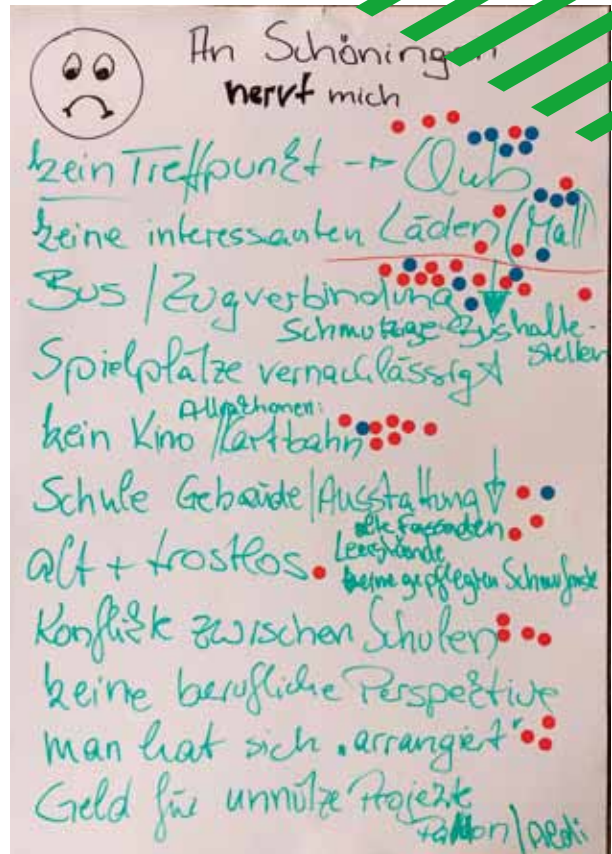 An Schöningen
nervt mich
kein Treffpunkt → Club
keine interessanten Läden (Mall)
Bus / Zugverbindung
Schmutzige Bushalte-
stellen
Spielplätze vernachlässigt
kein Kino / Kartbahn
Schule Gebäude / Ausstattung
alte Fassaden
alt + trostlos
Leerstände
keine gepflegten
Konflikte zwischen Schulen
keine berufliche Perspektive
man hat sich "arrangiert"
Geld für unnütze Projekte